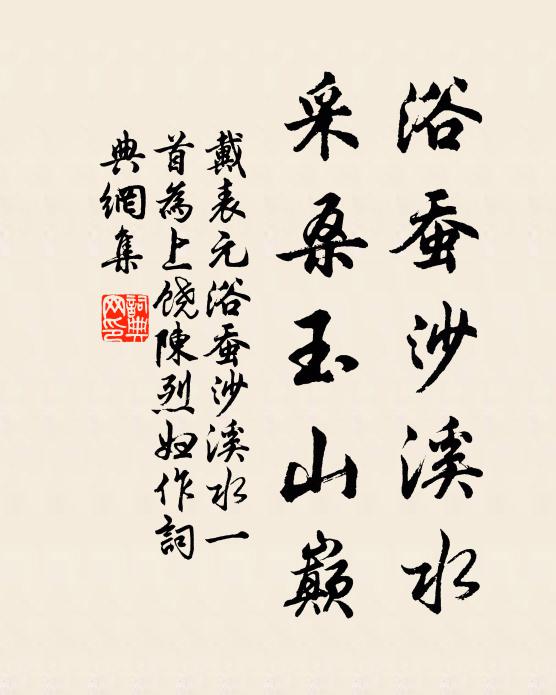 浴蚕沙溪水
采桑玉山巅
戴表元浴蚕沙溪水一
首為上饶陳烈妇作詞
典網集
詞典网印